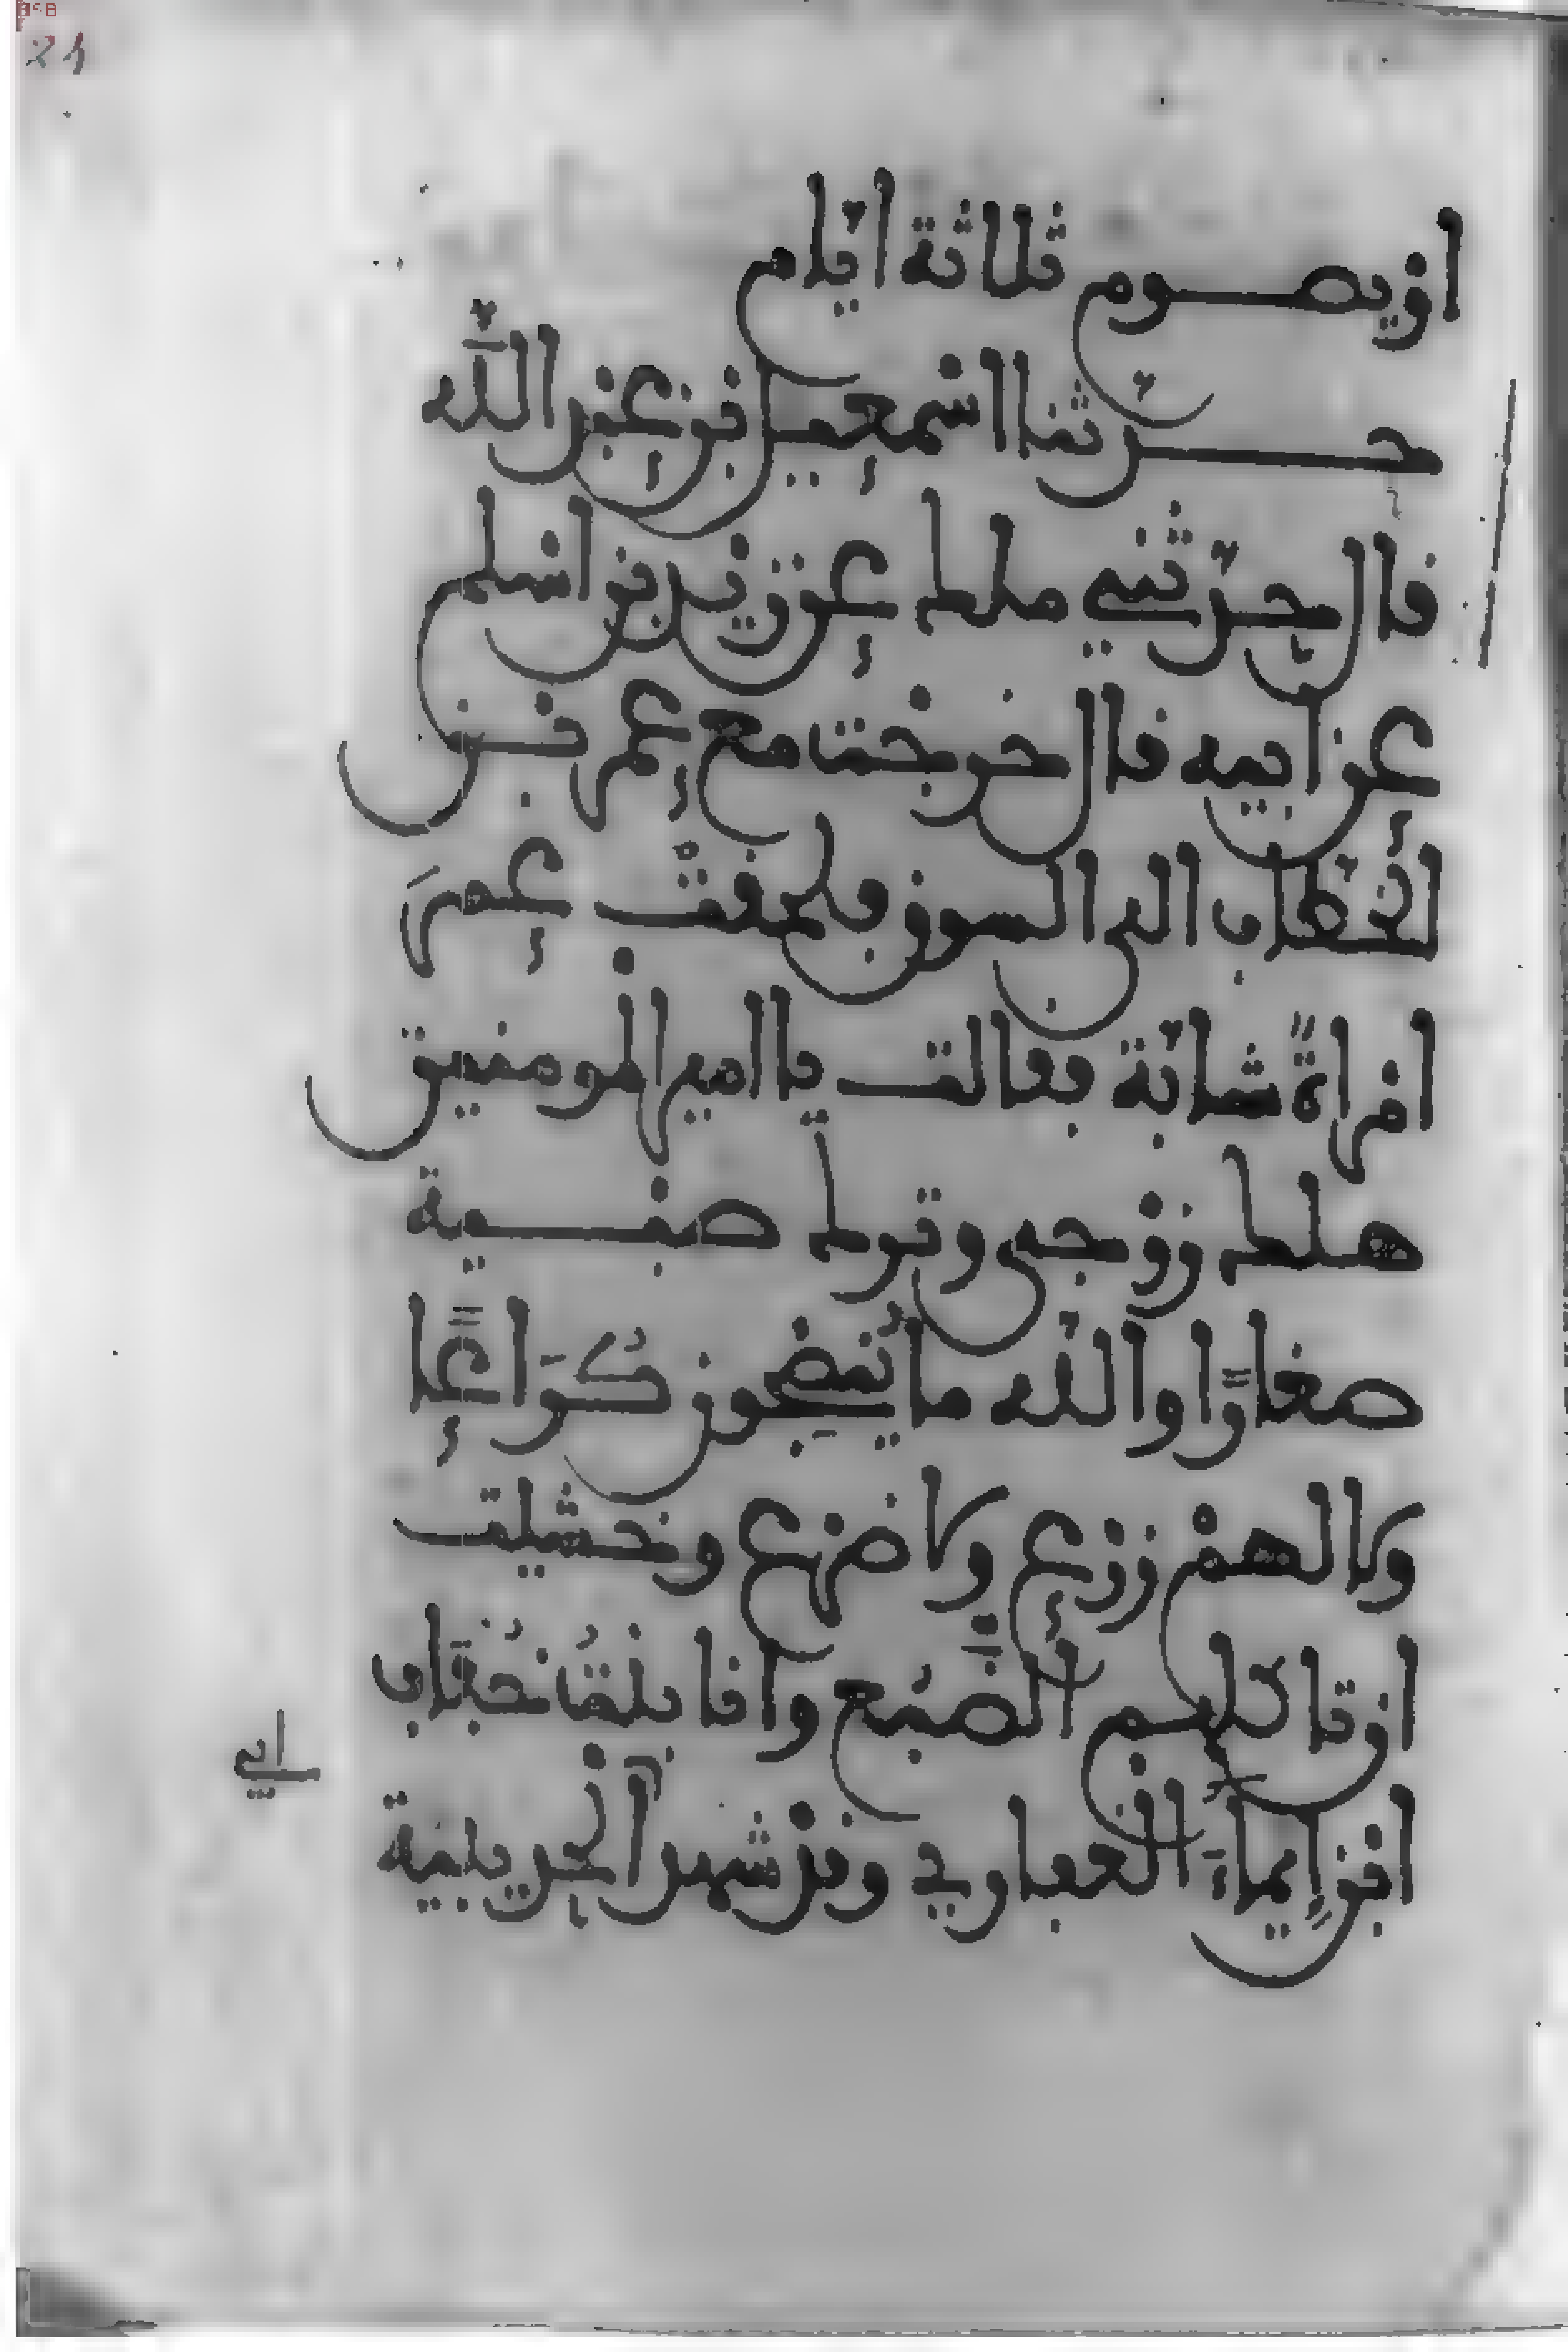 او يصوم ثلاثة ايّام
حدّثنا اسمعيل بن عبد اللّه
قال حدّثني ملك عن زيد بن اسلم
عن ابيه قال خرجت مع عمر بن
الخطّاب الى السوق فلحقتْ عمرَ
امراةٌ شابّة فقالت يا امير المومنين
هلك زوجي وترك صبية
صغارًا واللّه ما يُنضِجون كُرَاعًا
ولا لهمْ زرع ولا ضرع وخشيت
ان تاكلهم الضَّبُع وانا بنتُ خُفَاف
ابن إيماءَ الغفاري وقد شهد الحديبية
ابي